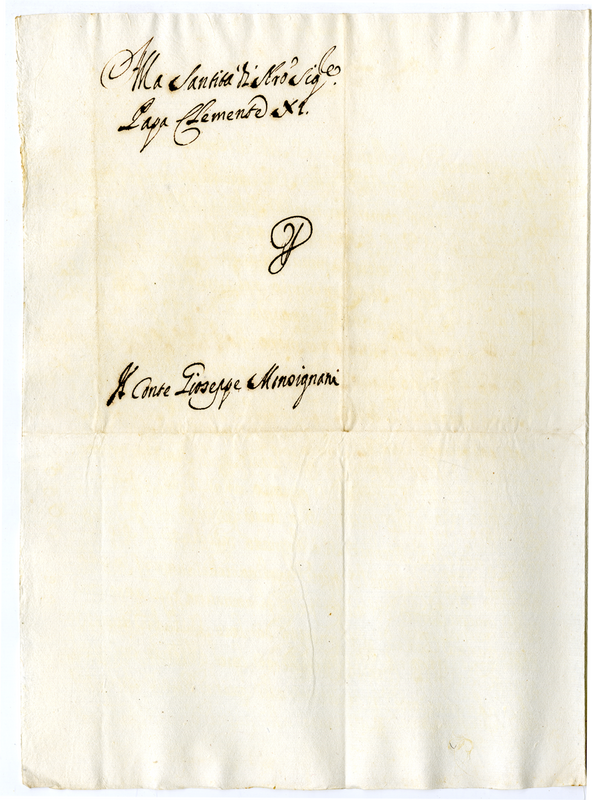 Alla Santità di Nro Sigre
Papa Clemente XI.
Il Conte Giuseppe Monsignani